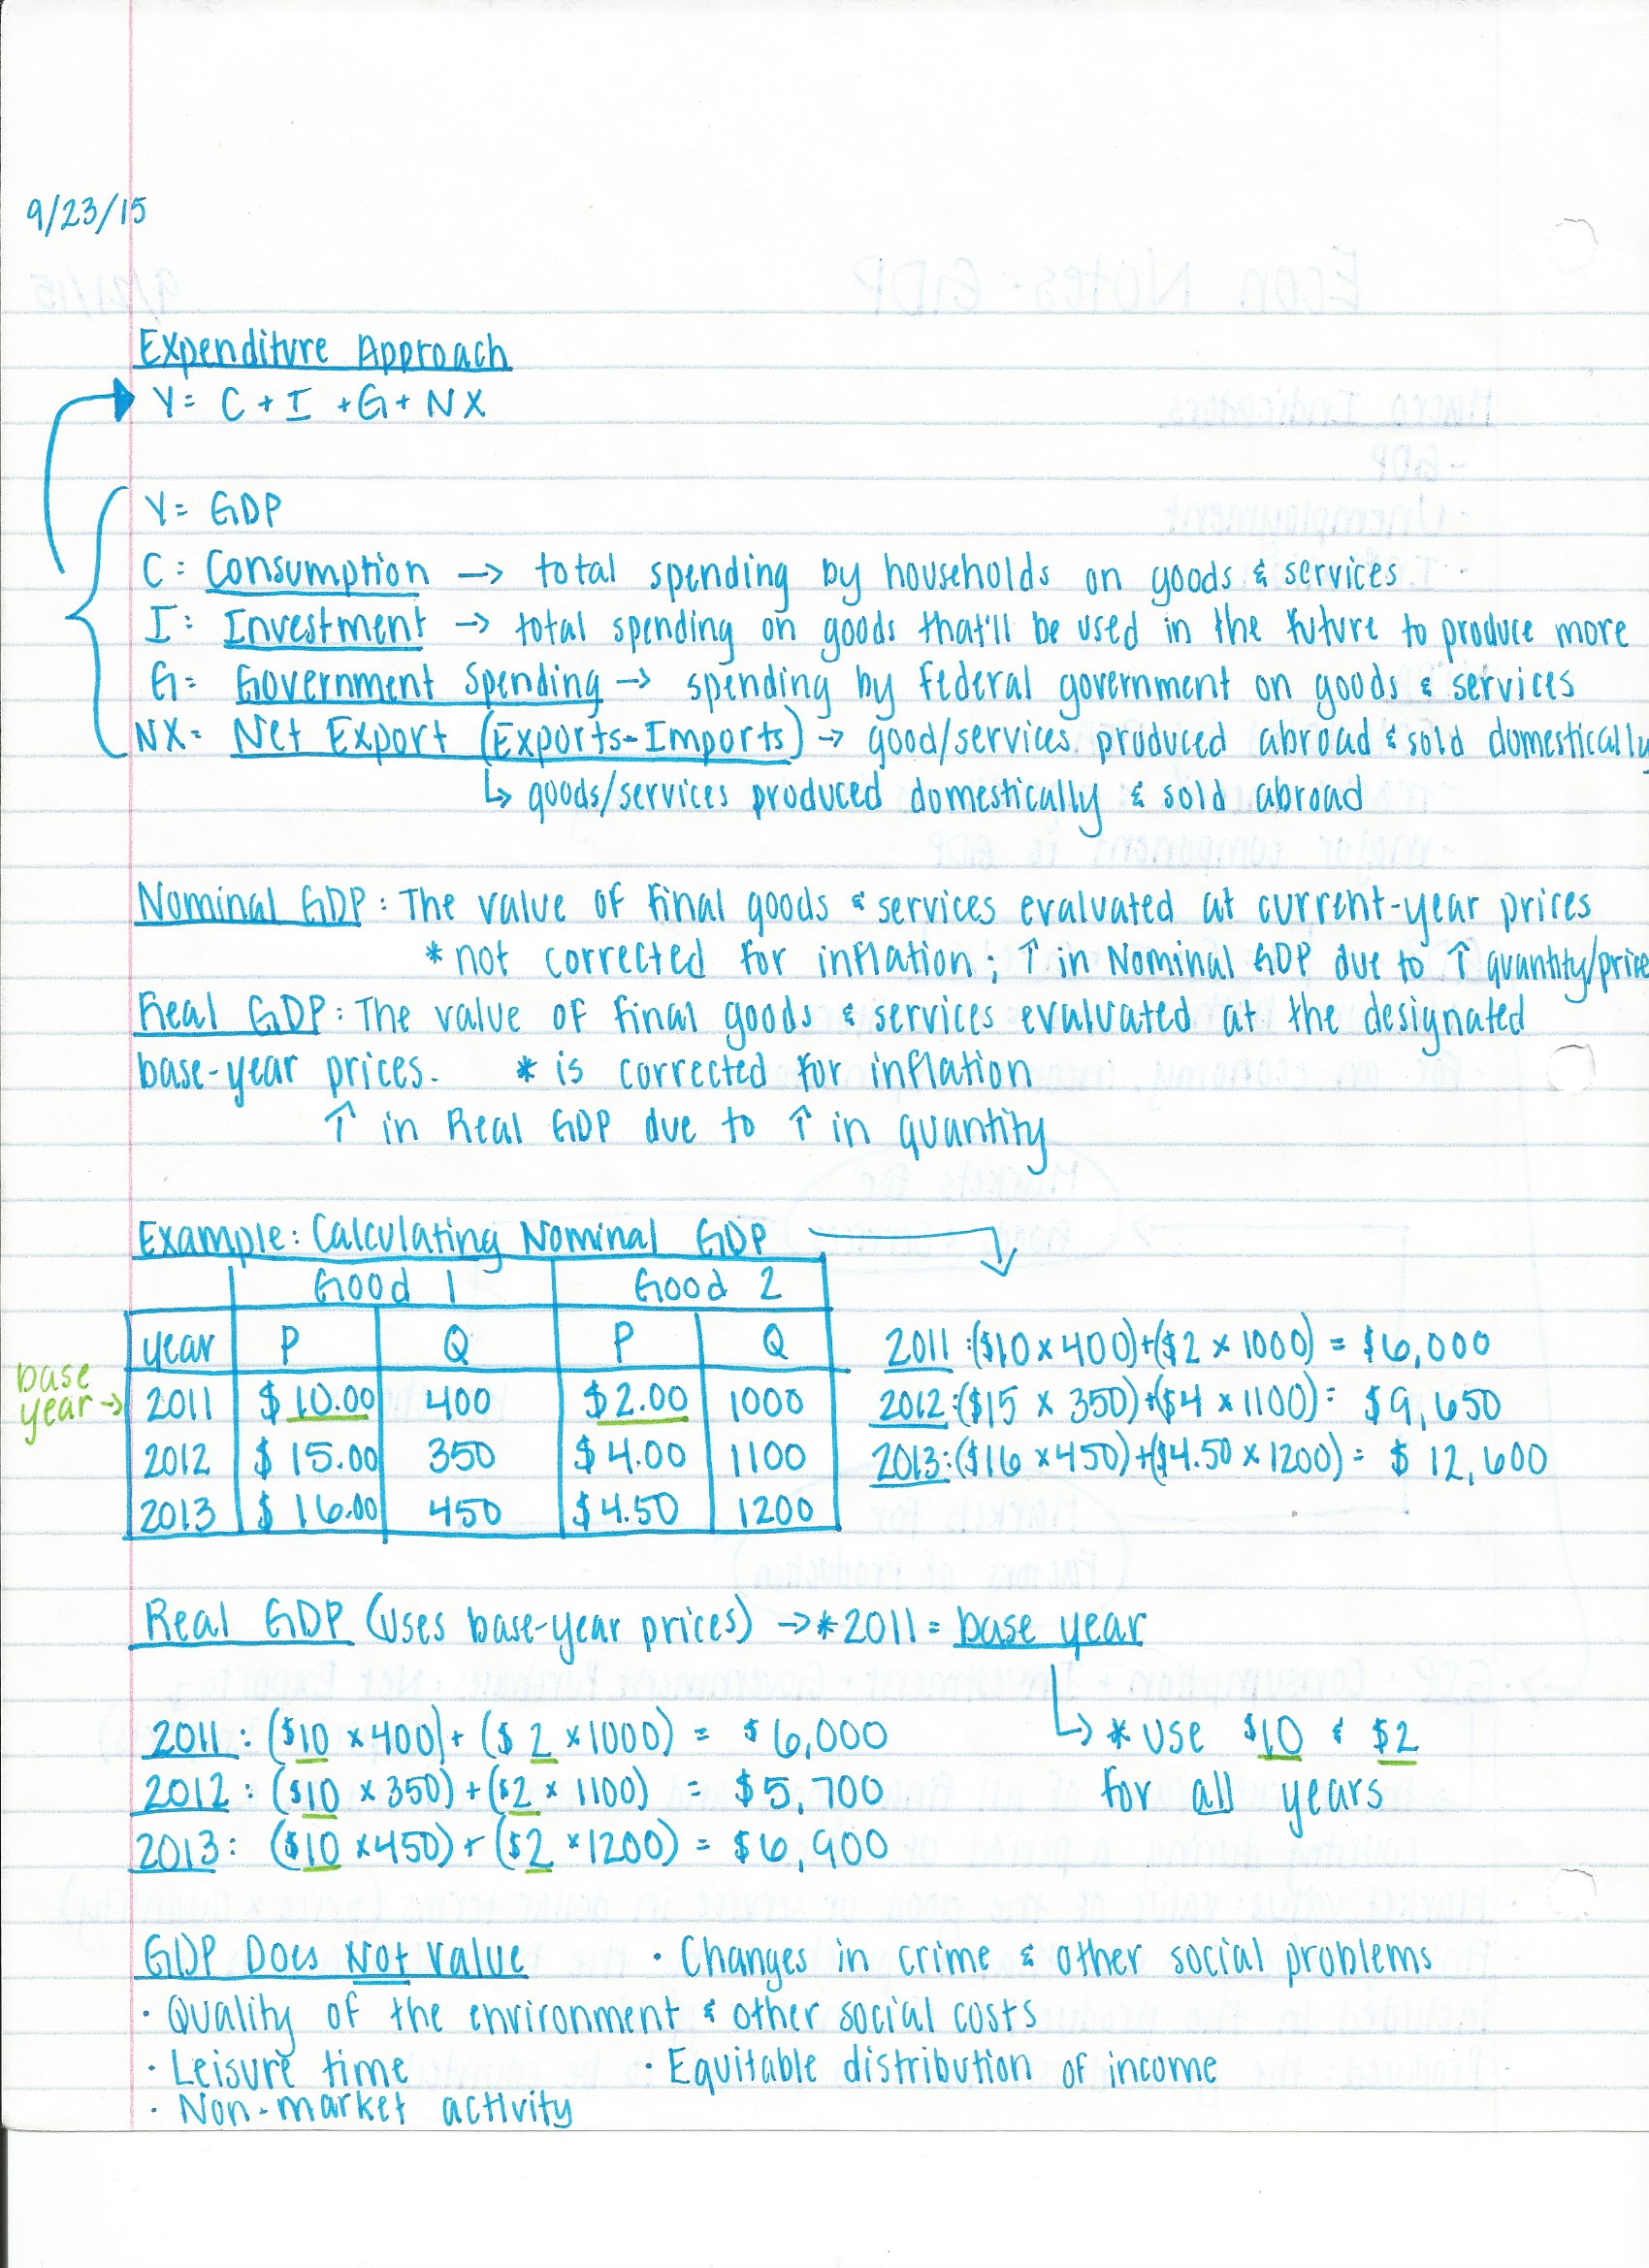 9/23/15
Expenditure Approach
Y = C + I + G + NX
Y = GDP
C = Consumption → total spending by households on goods & services
I = Investment → total spending on goods that'll be used in the future to produce more
G = Government Spending → spending by federal government on goods & services
NX = Net Export (Exports-Imports) → good/services produced abroad & sold domestically
↳ goods/services produced domestically & sold abroad
Nominal GDP: The value of final goods & services evaluated at current-year prices
* not corrected for inflation; ↑ in Nominal GDP due to ↑ quantity/price
Real GDP: The value of final goods & services evaluated at the designated
base-year prices. * is corrected for inflation
↑ in Real GDP due to ↑ in quantity
Example: Calculating Nominal GDP
Good 1 Good 2
year P Q P Q
base year → 2011 $10.00 400 $2.00 1000
2012 $15.00 350 $4.00 1100
2013 $16.00 450 $4.50 1200
2011: ($10 x 400)+($2 x 1000) = $6,000
2012: ($15 x 350)+($4 x 1100) = $9,650
2013: ($16 x 450)+($4.50 x 1200) = $12,600
Real GDP (uses base-year prices) → *2011 = base year
↳ * use $10 & $2
for all years
2011: ($10 x 400) + ($2 x 1000) = $6,000
2012: ($10 x 350) + ($2 x 1100) = $5,700
2013: ($10 x 450) + ($2 x 1200) = $6,900
GDP Does Not Value • Changes in crime & other social problems
• Quality of the environment & other social costs
• Leisure time • Equitable distribution of income
• Non-market activity